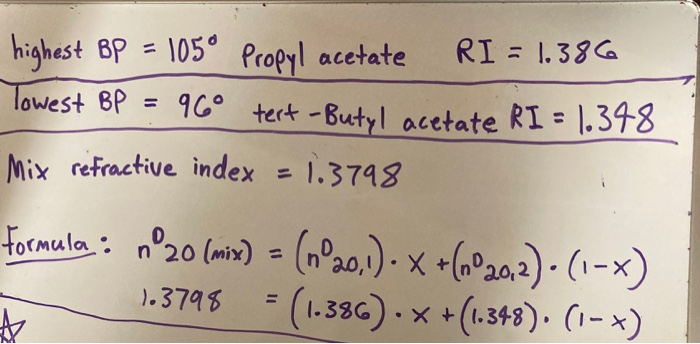 highest BP = 105° Propyl acetate RI = 1.386
lowest BP = 96° tert-Butyl acetate RI = 1.348
Mix refractive index = 1.3798
Formula: n^D 20 (mix) = (n^D 20,1) · x + (n^D 20,2) · (1-x)
1.3798 = (1.386) · x + (1.348) · (1-x)